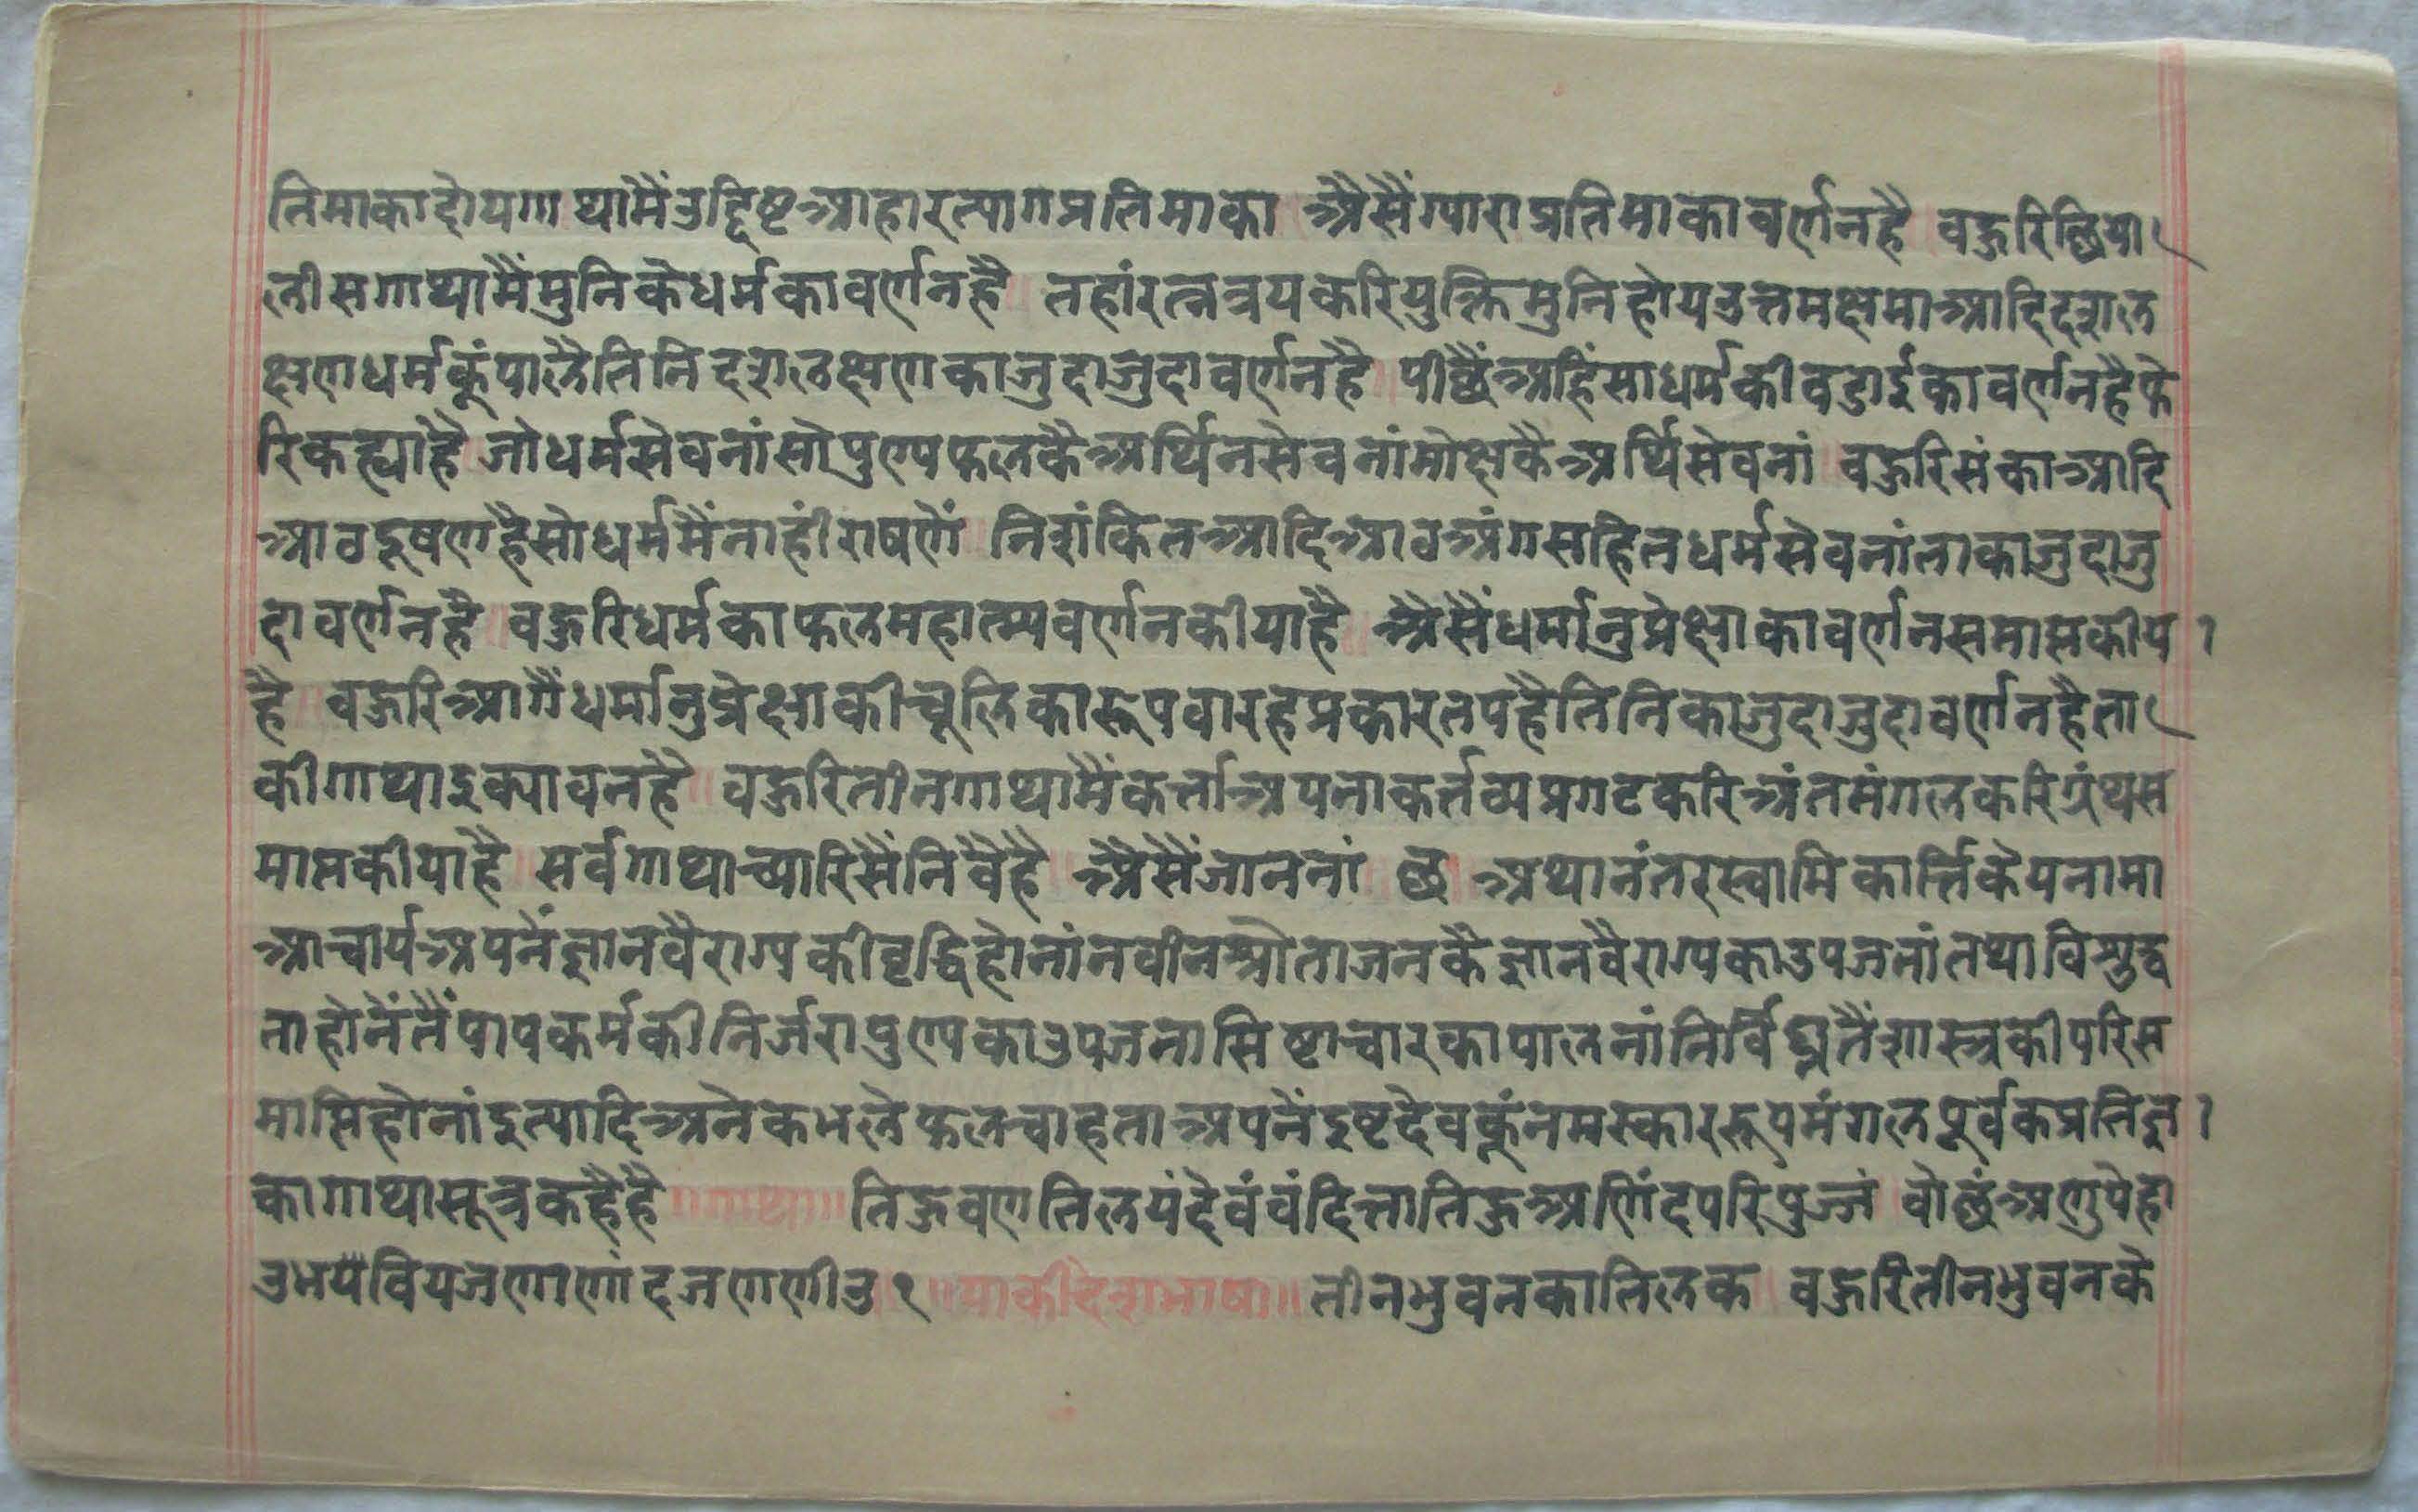 तिमाकादोयगाथामैंउद्दिष्टआहारत्यागप्रतिमाका ॥ अैसैंग्याराप्रतिमाकावर्णनहै ॥ बहुरिछिया
लीसगाथामैंमुनिकेधर्मकावर्णनहै ॥ तहांरत्नत्रयकरियुक्तिमुनिहोयउत्तमक्षमाआदिदशल
क्षणधर्मकूंपालैतिनिदशलक्षणकाजुदाजुदावर्णनहै ॥ पीछैंअहिंसाधर्मकीवडाईकावर्णनहैफे
रिकह्याहै ॥ जोधर्मसेवनांसोपुण्यफलकैअर्थिनसेवनांमोक्षकैअर्थिसेवनां ॥ बहुरिसंकाआदि
आठदूषणहैसोधर्ममैंनाहींराषणें ॥ निशंकितआदिआठअंगसहितधर्मसेवनांताकाजुदाजु
दावर्णनहै ॥ बहुरिधर्मकाफलमहात्म्यवर्णनकीयाहै ॥ अैसैंधर्मानुप्रेक्षाकावर्णनसमाप्तकीया
है ॥ बहुरिआगैंधर्मानुप्रेक्षाकीचूलिकारूपवारहप्रकारतपहैतिनिकाजुदाजुदावर्णनहैता
कीगाथाइक्यावनहै ॥ बहुरितीनगाथामैंकर्त्ताअपनाकर्त्तव्यप्रगटकरिअंतमंगलकरिग्रंथस
माप्तकीयाहै ॥ सर्वगाथाच्यारिसैंनिवैहै ॥ अैसैंजाननां ॥ छ ॥ अथानंतरस्वामिकार्त्तिकेयनामा
आचार्यअपनैंज्ञानवैराग्यकीवृद्धिहोनांनवीनश्रोताजनकैज्ञानवैराग्यकाउपजनांतथाविसुद्ध
ताहोनैंतैंपापकर्मकीनिर्जरापुण्यकाउपजनासिष्टाचारकापालनांनिर्विघ्नतैंशास्त्रकीपरिस
माप्तिहोनांइत्यादिअनेकभलेफलचाहताअपनैंइष्टदेवकूंनमस्काररूपमंगलपूर्वकप्रतिज्ञा
कागाथासूत्रकहैहै ॥ गाथा ॥ तिहुवणतिलयंदेवंवंदित्तातिहुअणिंदपरिपुज्जं ॥ वोछंअणुपेहा
उभयवियजणाणंदजणणीउ१ ॥ याकीदेशभाषा ॥ तीनभुवनकातिलक ॥ बहुरितीनभुवनके